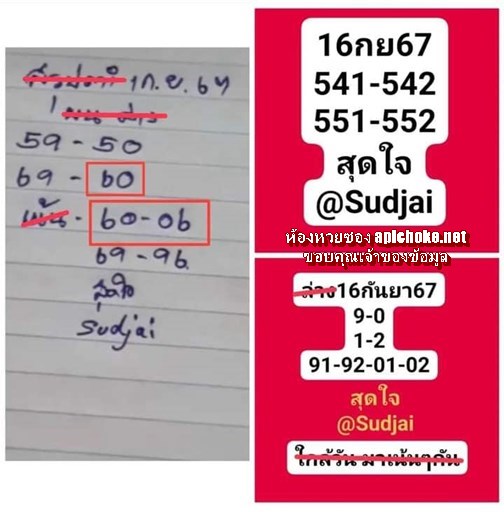 สรุปตาทำ 1 ก.ย. 67
บน ล่าง
59 - 50
69 - 60
เน้น - 60-06
69-96
สุดใจ
Sudjai
16กย67
541-542
551-552
สุดใจ
@Sudjai
ห้องหวยซอง apichoke.net
ขอบคุณเจ้าของข้อมูล
ล่าง16กันยา67
9-0
1-2
91-92-01-02
สุดใจ
@Sudjai
ใกล้วัน มาเน้นๆกัน